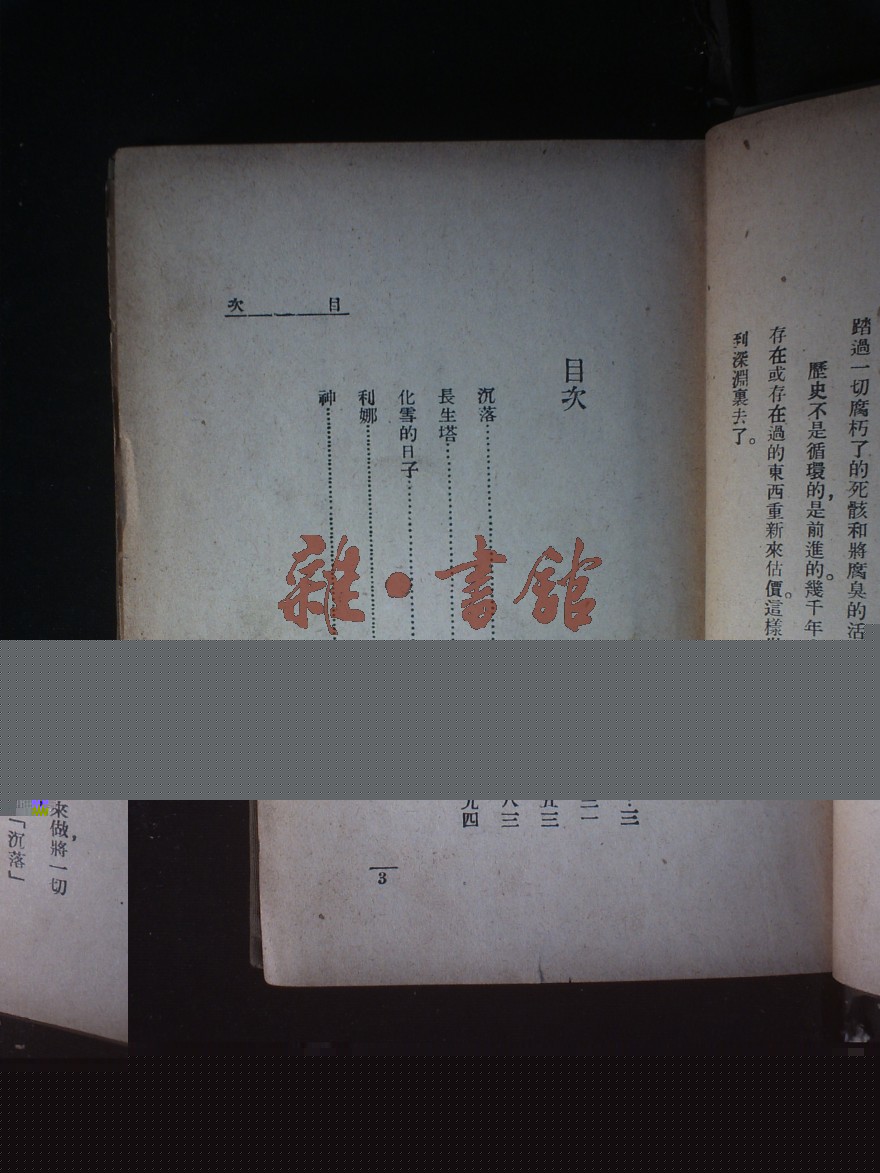 踏過一切腐朽了的死骸和將腐臭的活
歷史不是循環的，是前進的。幾千年
存在或存在過的東西重新來估價。這樣
到深淵裏去了。
目次
目次
沉落
長生塔
化雪的日子
利娜
神
雜·書館
三
三一
五三
八三
九四
3
來做，將一切
「沉落」